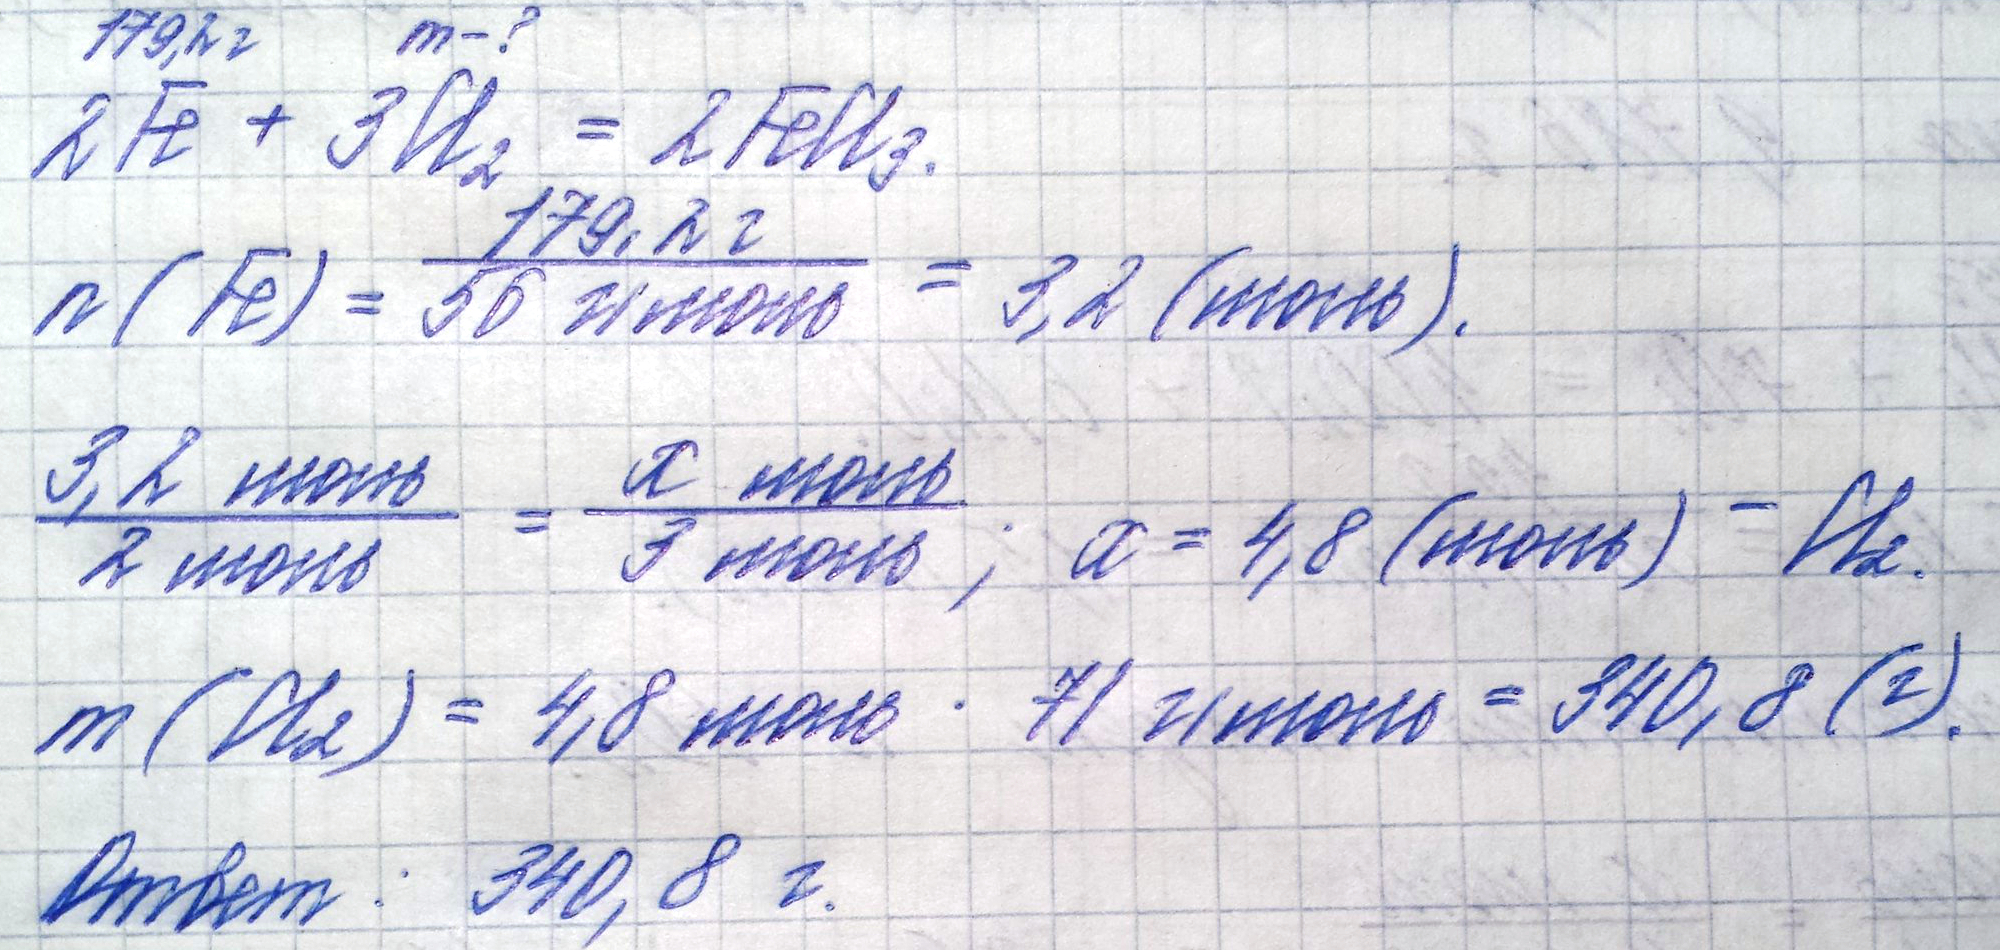 179,2 г m-?
2Fe + 3Cl₂ = 2FeCl₃.
n(Fe) = 179,2 г / 56 г/моль = 3,2 (моль).
3,2 моль / 2 моль = x моль / 3 моль ; x = 4,8 (моль) - Cl₂.
m(Cl₂) = 4,8 моль · 71 г/моль = 340,8 (г).
Ответ: 340,8 г.